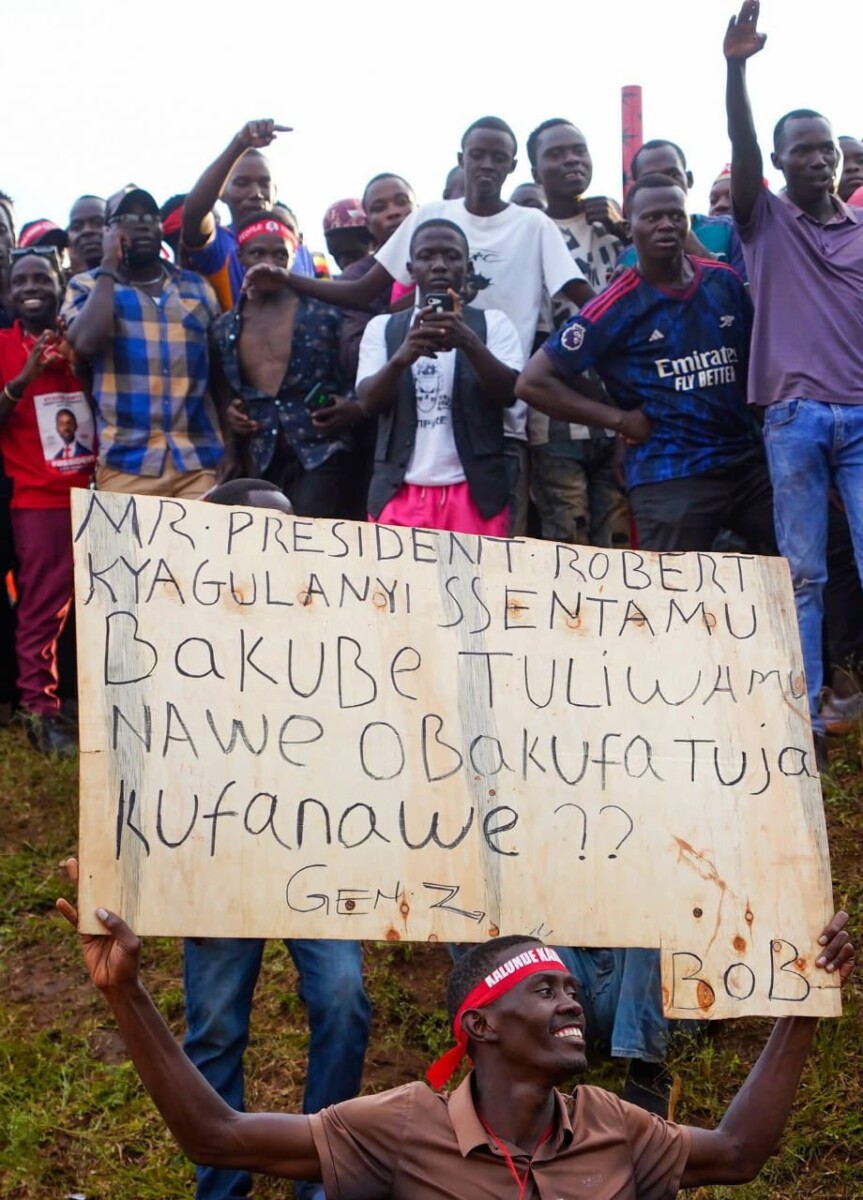 PEOPLE
Emirates
FLY BETTER
MR. PRESIDENT. ROBERT
KYAGULANYI SSENTAMU
BakUBe TULIWAMU
NAWe OBakUfa TUja
kUfanawe ??
GEN. Z
BOB
KALUNDE